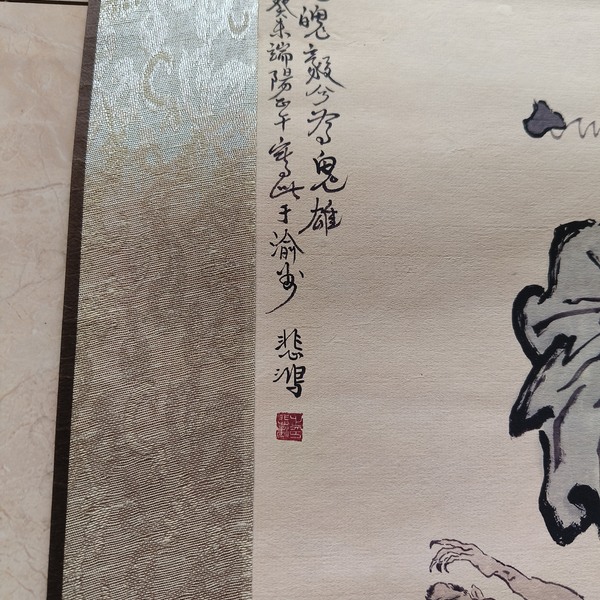 魄毅兮為鬼雄
癸未端陽正午寫此于渝州
悲鴻